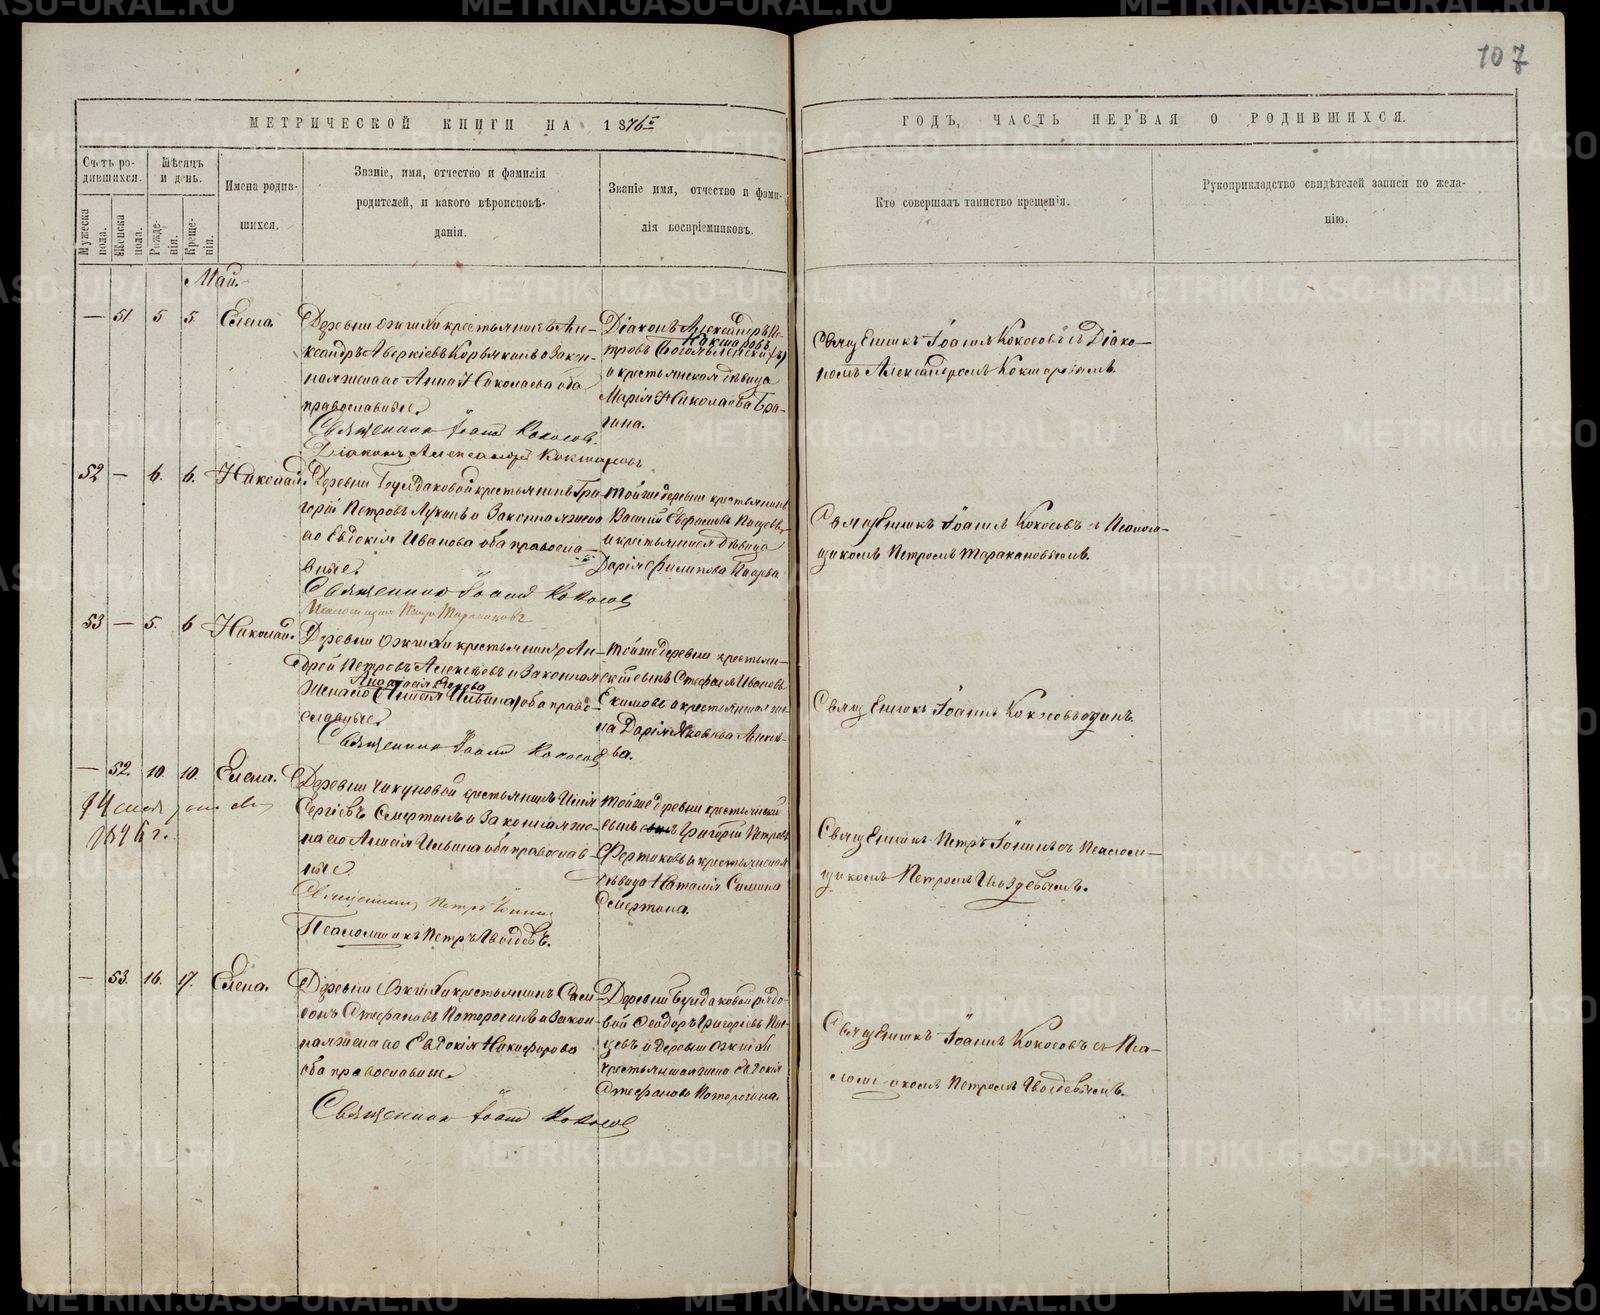 107
МЕТРИЧЕСКОЙ КНИГИ НА 1876 г.
ГОДЪ, ЧАСТЬ ПЕРВАЯ О РОДИВШИХСЯ.
Счетъ родившихся.
Мужеска пола.
Женска пола.
Мѣсяцъ и день.
Рожденія.
Крещенія.
Имена родившихся.
Званіе, имя, отчество и фамилія
родителей, и какого вѣроисповѣ-
данія.
Званіе имя, отчество и фами-
лія воспріемниковъ.
Кто совершалъ таинство крещенія.
Рукоприкладство свидѣтелей записи по жела-
нію.
Май.
— 51 5 5 Елена.
Деревни Ожгихи крестьянинъ Але-
ксандръ Аверкіевъ Корякинъ и Закон-
ная жена его Анна Николаева оба
православные.
Священник Іоанн Кокосов.
Діаконъ Александръ Кокшаровъ
Діаконъ Александръ Пе-
тровъ Кокшаровъ
и крестьянская дѣвица
Марія Николаева Бра-
гина.
Священникъ Іоаннъ Кокосовъ съ Діако-
номъ Александромъ Кокшаровымъ.
52 — 6. 6. Николай.
Деревни Булдаковой крестьянинъ Гри-
горій Петровъ Лукинъ и Законная жена
его Евдокія Иванова оба правосла-
вные.
Священник Іоанн Кокосов
Псаломщик Петръ Таракановъ
Той же деревни крестьянинъ
Василій
и крестьянская дѣвица
Дарія Филипова
Священникъ Іоаннъ Кокосовъ съ Псалом-
щикомъ Петромъ Таракановымъ.
53 — 5. 6 Николай.
Деревни Ожгихи крестьянинъ Ан-
дрей Петровъ Алексѣевъ и Законная
жена его Анисія Ильина оба право-
славные.
Священник Іоанн Кокосов
Той же деревни крестьян-
скій сынъ Стефанъ Ивановъ
Екимовъ и крестьянская же-
на Дарія Яковлева Алексѣ-
ева.
Священникъ Іоаннъ Кокосовъ одинъ.
— 52. 10. 10. Елена.
1876 г.
Деревни Чикуновой крестьянинъ Илія
Сергіевъ Смертинъ и Законная же-
на его Анисія Ильина оба православ-
ные.
Священникъ Петръ Іонинъ
Псаломщикъ Петръ Гвоздевъ.
Той же деревни крестьянскій
сынъ Григорій Петровъ
Фертиковъ и крестьянская
дѣвица Наталія Савина
Смертина.
Священникъ Петръ Іонинъ съ Псалом-
щикомъ Петромъ Гвоздевымъ.
— 53. 16. 17. Елена.
Деревни Ожгихи крестьянинъ Саси-
фонъ Стефановъ Поторочинъ и Закон-
ная жена его Евдокія Никифорова
оба православные.
Священник Іоанн Кокосов
Деревни Булдаковой рядо-
вой Феодоръ Григорьевъ
и деревни Ожгихи
крестьянская жена Евдокія
Стефанова Поторочина.
Священникъ Іоаннъ Кокосовъ съ Пса-
ломщикомъ Петромъ Гвоздевымъ.
METRIKI.GASO-URAL.RU